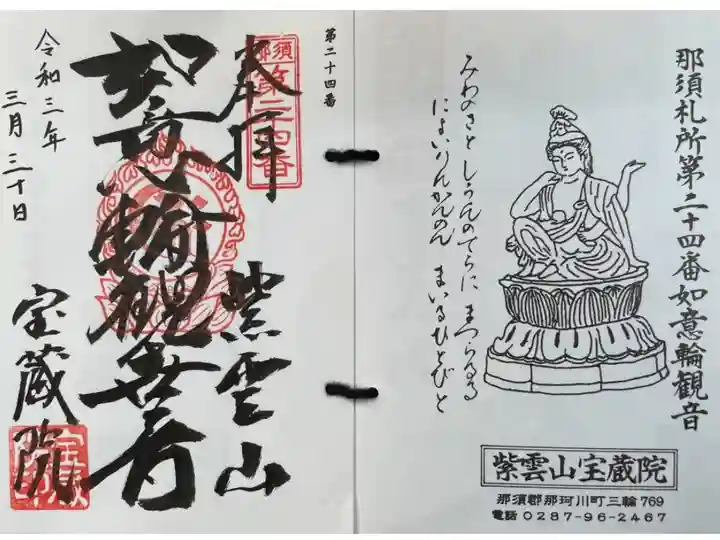 那須札所第二十四番如意輪観音
みわのさと しうんのてらに まつらるる
によいりんかんのん まいるひとびと
紫雲山宝蔵院
那須郡那珂川町三輪769
電話 0287-96-2467
第二十四番
那須
第二十四番
奉拝
紫雲山
如意輪観世音
宝蔵院
令和三年
三月三十日